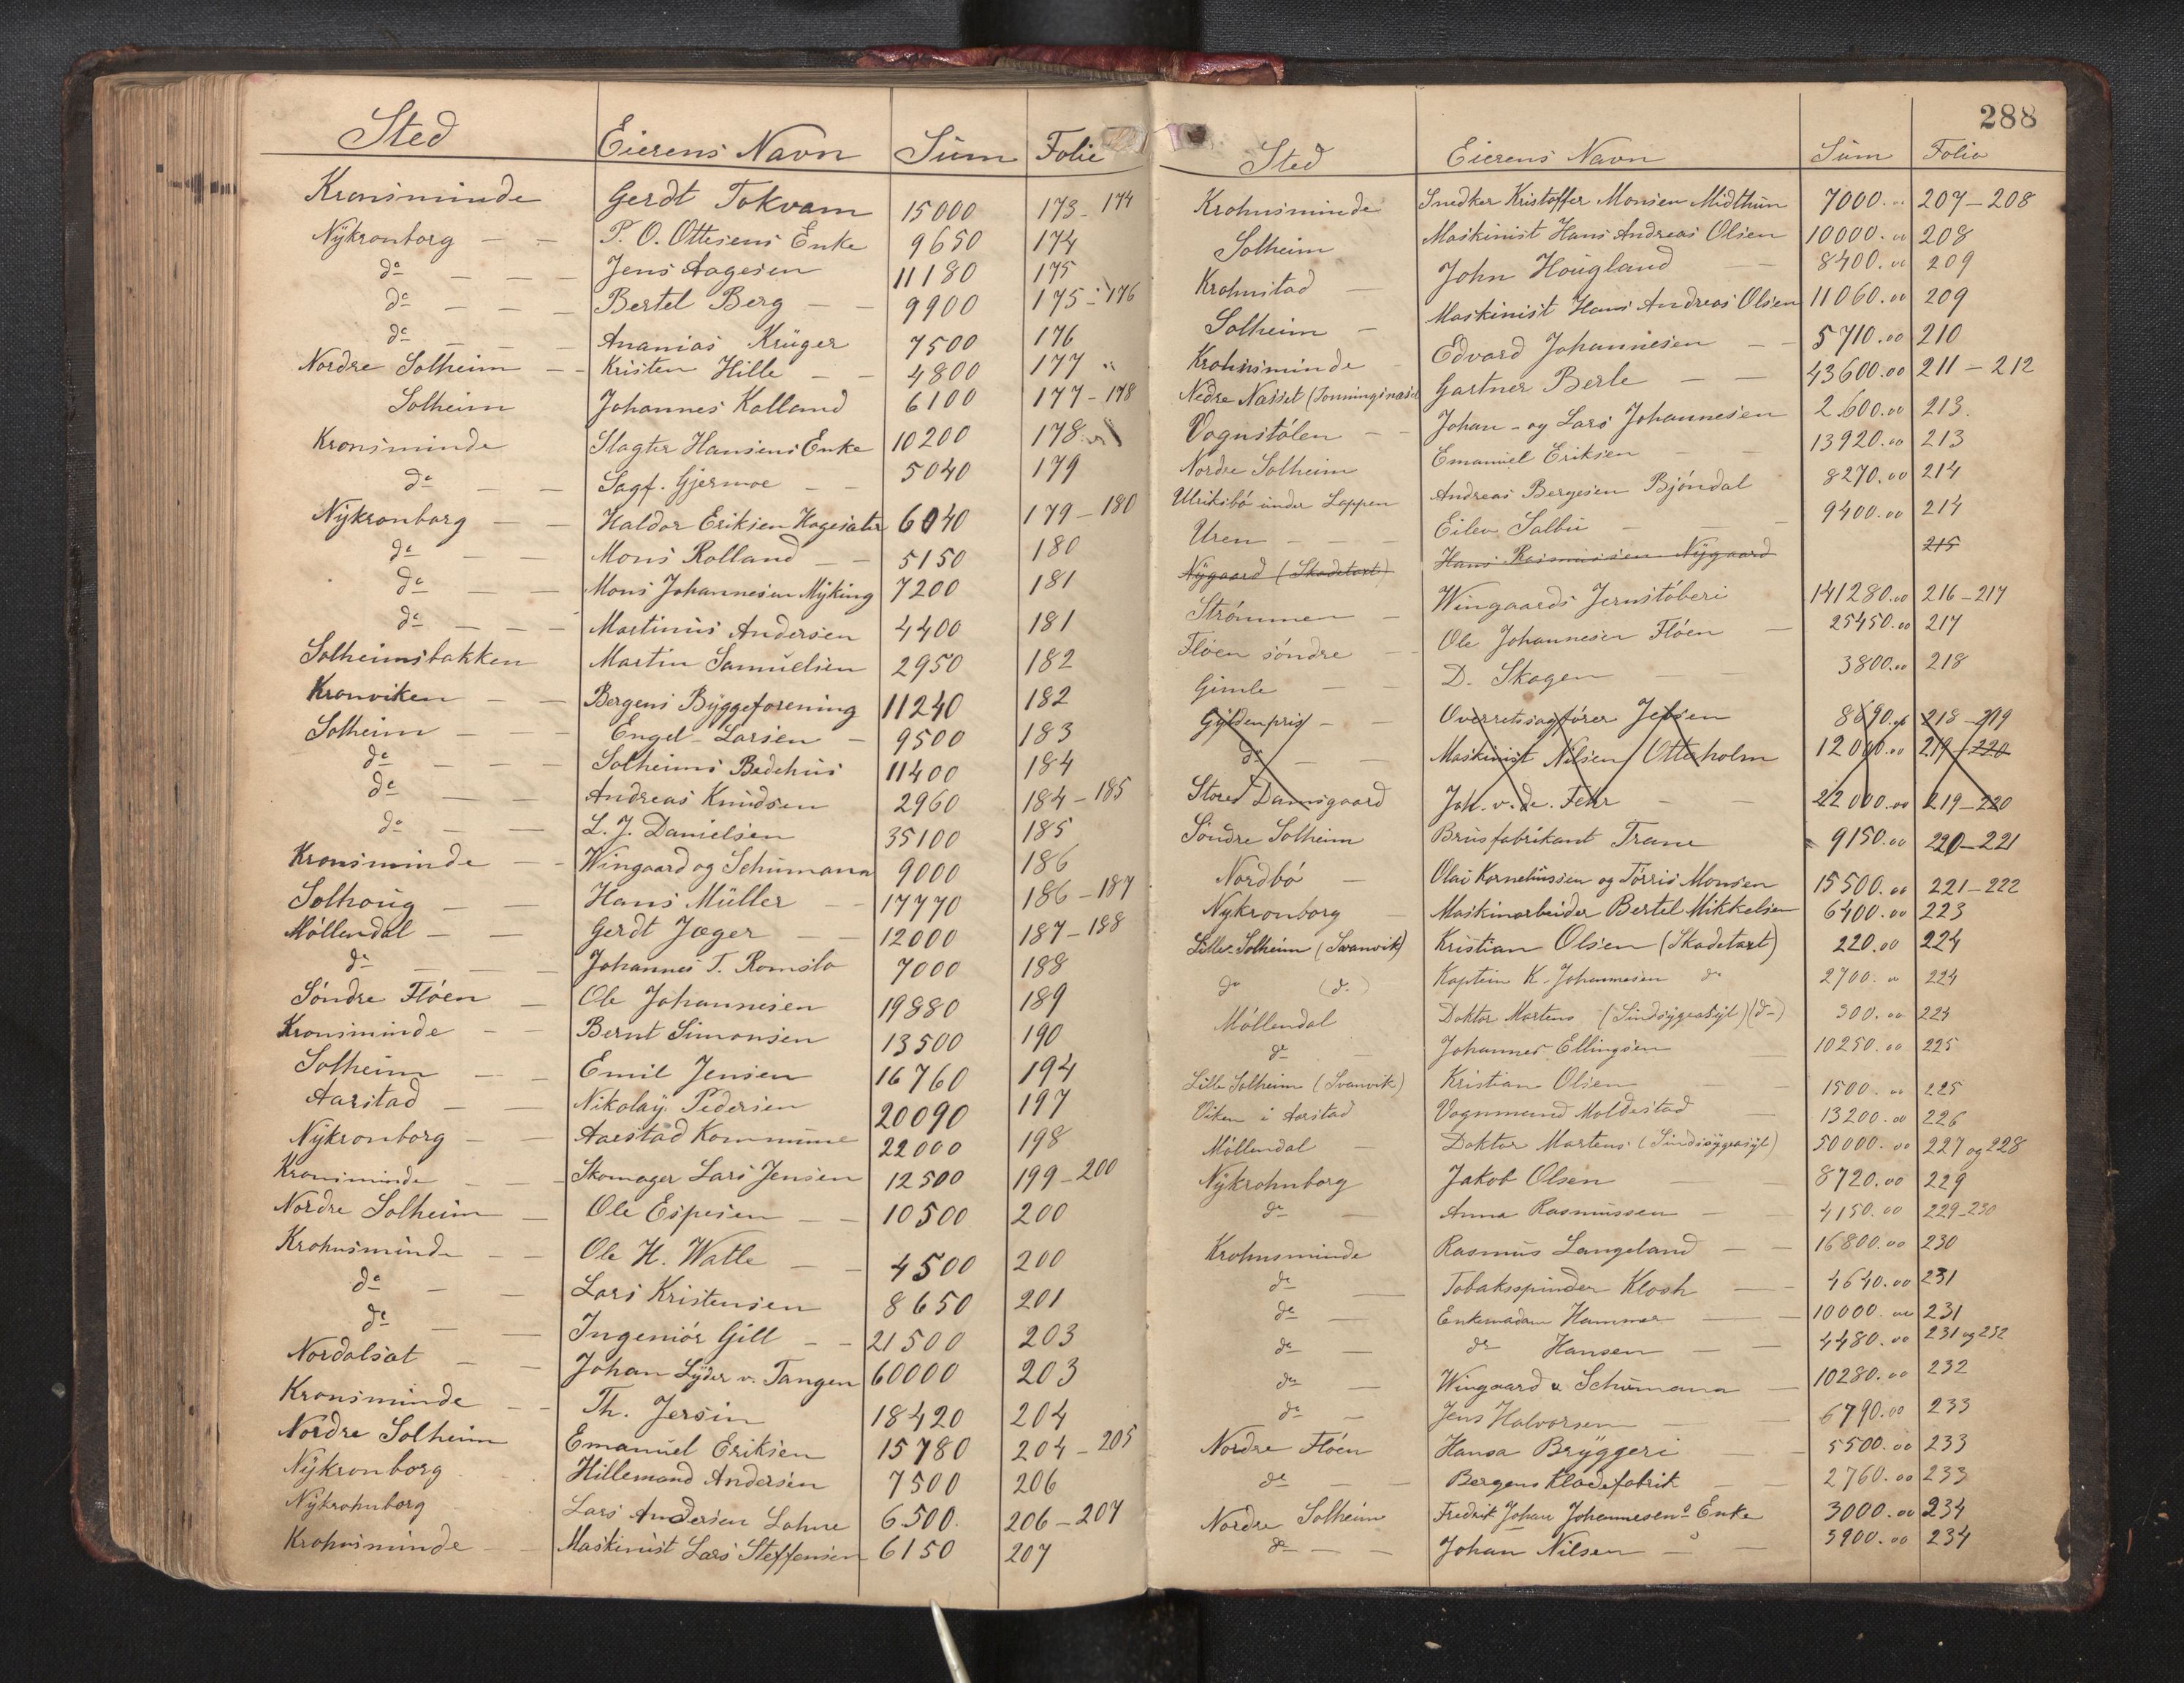 Sted Eierens Navn Sum Folie
Kronsminde Gerdt Tokvam 15000 173-174
Nykronborg P. O. Ottesens Enke 9650 174
do Jens Aagesen 11180 175
do Bertel Berg 9900 175-176
do Ananias Krüger 7500 176
Nordre Solheim Kristen Hille 4800 177
Solheim Johannes Kalland 6100 177-178
Kronsminde Slagter Hansens Enke 10200 178
do Sagf. Gjermoe 5040 179
Nykronborg Haldor Eriksen Hagesater 6040 179-180
do Mons Rolland 5150 180
do Mons Johannesen Myking 7200 181
do Martinus Andersen 4400 181
Solheimsbakken Martin Samuelsen 2950 182
Kronviken Bergens Byggeforening 11240 182
Solheim Engel-Larsen 9500 183
do Solheims Bedehus 11400 184
do Andreas Knudsen 2960 184-185
do L. J. Danielsen 35100 185
Kronsminde Wingaard og Schumann 9000 186
Solhoug Hans Müller 17770 186-187
Möllendal Gerdt Jæger 12000 187-188
do Johannes T. Romslo 7000 188
Söndre Flöen Ole Johannesen 19880 189
Kronsminde Bernt Simonsen 13500 190
Solheim Emil Jensen 16760 194
Aarstad Nikolay Pedersen 20090 197
Nykronborg Aarstad Kommune 22000 198
Kronsminde Skomager Lars Jensen 12500 199-200
Nordre Solheim Ole Espesen 10500 200
Krohnsminde Ole H. Watle 4500 200
do Lars Kristensen 8650 201
do Ingeniör Gill 21500 203
Nordalsat Johan Lyder v. Tangen 60000 203
Kronsminde Th. Jersin 18420 204
Nordre Solheim Emanuel Eriksen 15780 204-205
Nykronborg Hillemand Andersen 7500 206
Nykrohnborg Lars Andersen Lohne 6500 206-207
Krohnsminde Maskinist Lars Steffensen 6150 207
288
Sted Eierens Navn Sum Folio
Krohnsminde Snedker Kristoffer Monsen Midthun 7000.00 207-208
Solheim Maskinist Hans Andreas Olsen 10000.00 208
Krohnstad John Hougland 8400.00 209
Solheim Maskinist Hans Andreas Olsen 11060.00 209
Krohnsminde Edvard Johannesen 5710.00 210
Nedre Næsset (Tonningsnæset Gartner Berle 43600.00 211-212
Vognstölen Johan- og Lars Johannesen 2600.00 213.
Nordre Solheim Emanuel Eriksen 13920.00 213
Ulriksbö under Lappen Andreas Bergesen Bjöndal 8270.00 214
Uren Eilev Salbu 9400.00 214
Nygaard (Skadetaxt) Hans Rasmussen Nygaard 215
Strömmen Wingaards Jernstöberi 141280.00 216-217
Flöen söndre Ole Johannesen Flöen 25450.00 217
Gimle D. Skagen 3800.00 218
Gyldenpris Overretssagförer Jebsen 8690.00 218-219
do Maskinist Nilsen/Otterholm 12000.00 219-220
Store Damsgaard Joh. v. de. Fehr 22000.00 219-220
Söndre Solheim Brusfabrikant Trane 9150.00 220-221
Nordbö Olai Korneliussen og Törris Monsen 15500.00 221-222
Nykronborg Maskinarbeider Bertel Mikkelsen 6400.00 223
Lille-Solheim (Svanvik) Kristian Olsen (Skadetaxt) 220.00 224
do (do) Kaptein K. Johannesen do 2700.00 224
Möllendal Doktor Martens (Sindsygeasyl) (do) 300.00 224
do Johannes Ellingsen 10250.00 225
Lille Solheim (Svanvik) Kristian Olsen 1500.00 225
Viken i Aarstad Vognmand Moldestad 13200.00 226
Möllendal Doktor Martens (Sindssygeasyl) 50000.00 227 og 228
Nykrohnborg Jakob Olsen 8720.00 229
do Anna Rasmussen 4150.00 229-230
Krohnsminde Rasmus Langeland 16800.00 230
do Tobaksspinder Klosh 4640.00 231
do Enkemadam Hammer 10000.00 231
do do Hansen 4480.00 231 og 232
do Wingaard & Schumann 10280.00 232
do Jens Halvorsen 6790.00 233
Nordre Flöen Hansa Bryggeri 5500.00 233
do Bergens Kladefabrik 2760.00 233
Nordre Solheim Fredrik Johan Johannesens Enke 3000.00 234
do Johan Nilsen 5900.00 234